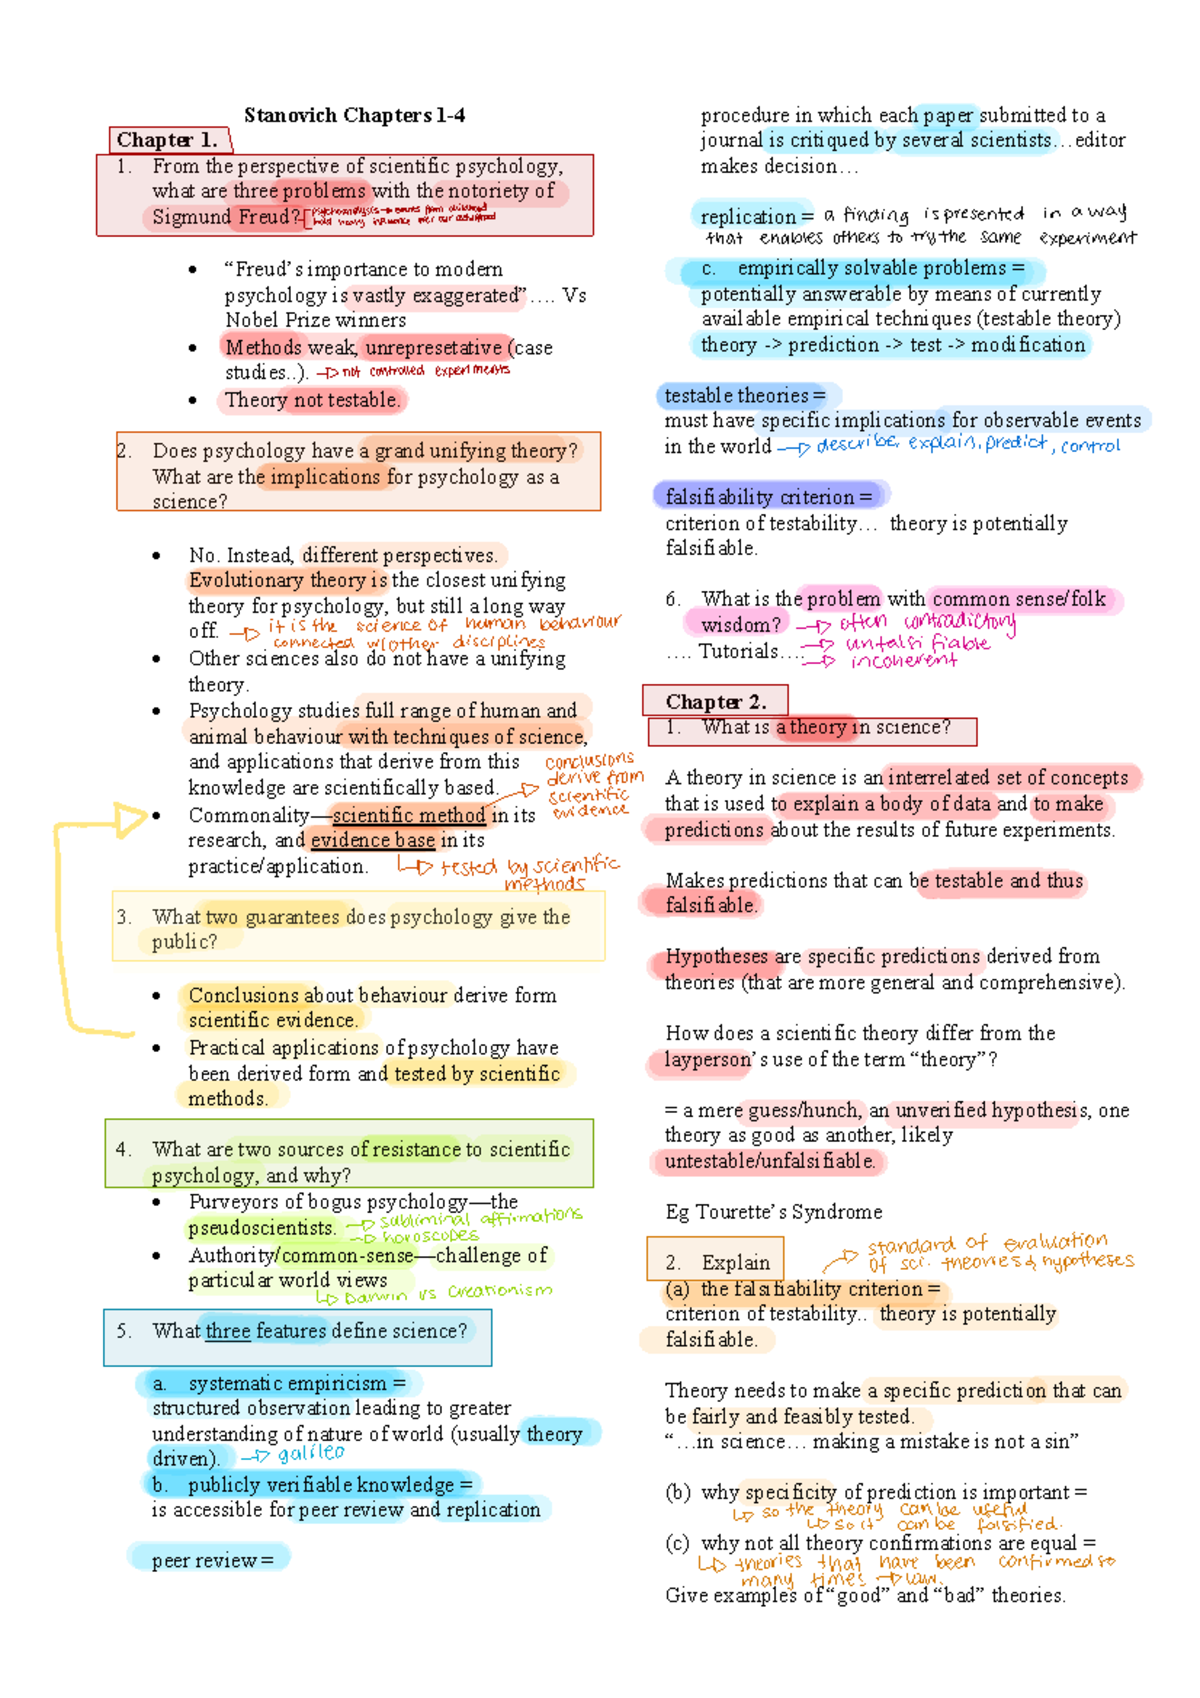 Stanovich Chapters 1-4
Chapter 1.
1. From the perspective of scientific psychology,
what are three problems with the notoriety of
Sigmund Freud?
psychoanalysis → events from childhood
hold heavy influence over our adulthood
• “Freud’s importance to modern
psychology is vastly exaggerated”…. Vs
Nobel Prize winners
• Methods weak, unrepresetative (case
studies..). → not controlled experiments
• Theory not testable.
2. Does psychology have a grand unifying theory?
What are the implications for psychology as a
science?
• No. Instead, different perspectives.
Evolutionary theory is the closest unifying
theory for psychology, but still a long way
off. → it is the science of human behaviour
connected w/other disciplines
• Other sciences also do not have a unifying
theory.
• Psychology studies full range of human and
animal behaviour with techniques of science,
and applications that derive from this
knowledge are scientifically based.
conclusions
derive from
scientific
evidence
• Commonality—scientific method in its
research, and evidence base in its
practice/application. → tested by scientific
methods
3. What two guarantees does psychology give the
public?
• Conclusions about behaviour derive form
scientific evidence.
• Practical applications of psychology have
been derived form and tested by scientific
methods.
4. What are two sources of resistance to scientific
psychology, and why?
• Purveyors of bogus psychology—the
pseudoscientists. → subliminal affirmations
→ horoscopes
• Authority/common-sense—challenge of
particular world views
→ Darwin vs creationism
5. What three features define science?
a. systematic empiricism =
structured observation leading to greater
understanding of nature of world (usually theory
driven). → galileo
b. publicly verifiable knowledge =
is accessible for peer review and replication
peer review =
procedure in which each paper submitted to a
journal is critiqued by several scientists…editor
makes decision…
replication = a finding is presented in a way
that enables others to try the same experiment
c. empirically solvable problems =
potentially answerable by means of currently
available empirical techniques (testable theory)
theory -> prediction -> test -> modification
testable theories =
must have specific implications for observable events
in the world → describe, explain, predict, control
falsifiability criterion =
criterion of testability… theory is potentially
falsifiable.
6. What is the problem with common sense/folk
wisdom? → often contradictory
→ unfalsifiable
…. Tutorials….
→ incoherent
Chapter 2.
1. What is a theory in science?
A theory in science is an interrelated set of concepts
that is used to explain a body of data and to make
predictions about the results of future experiments.
Makes predictions that can be testable and thus
falsifiable.
Hypotheses are specific predictions derived from
theories (that are more general and comprehensive).
How does a scientific theory differ from the
layperson’s use of the term “theory”?
= a mere guess/hunch, an unverified hypothesis, one
theory as good as another, likely
untestable/unfalsifiable.
Eg Tourette’s Syndrome
2. Explain
→ standard of evaluation
of sci. theories & hypotheses
(a) the falsifiability criterion =
criterion of testability.. theory is potentially
falsifiable.
Theory needs to make a specific prediction that can
be fairly and feasibly tested.
“…in science… making a mistake is not a sin”
(b) why specificity of prediction is important =
→ so the theory can be useful
→ so it can be falsified.
(c) why not all theory confirmations are equal =
→ theories that have been confirmed so
many times → law.
Give examples of “good” and “bad” theories.